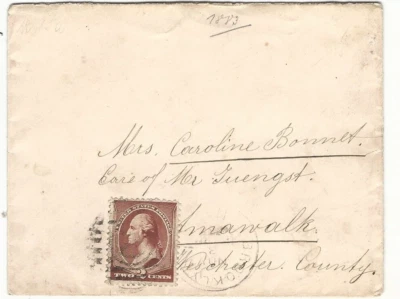 1883
Mrs. Caroline Bonnet.
Care of Mr Tuengst.
Amawalk.
Westchester County.
TWO CENTS